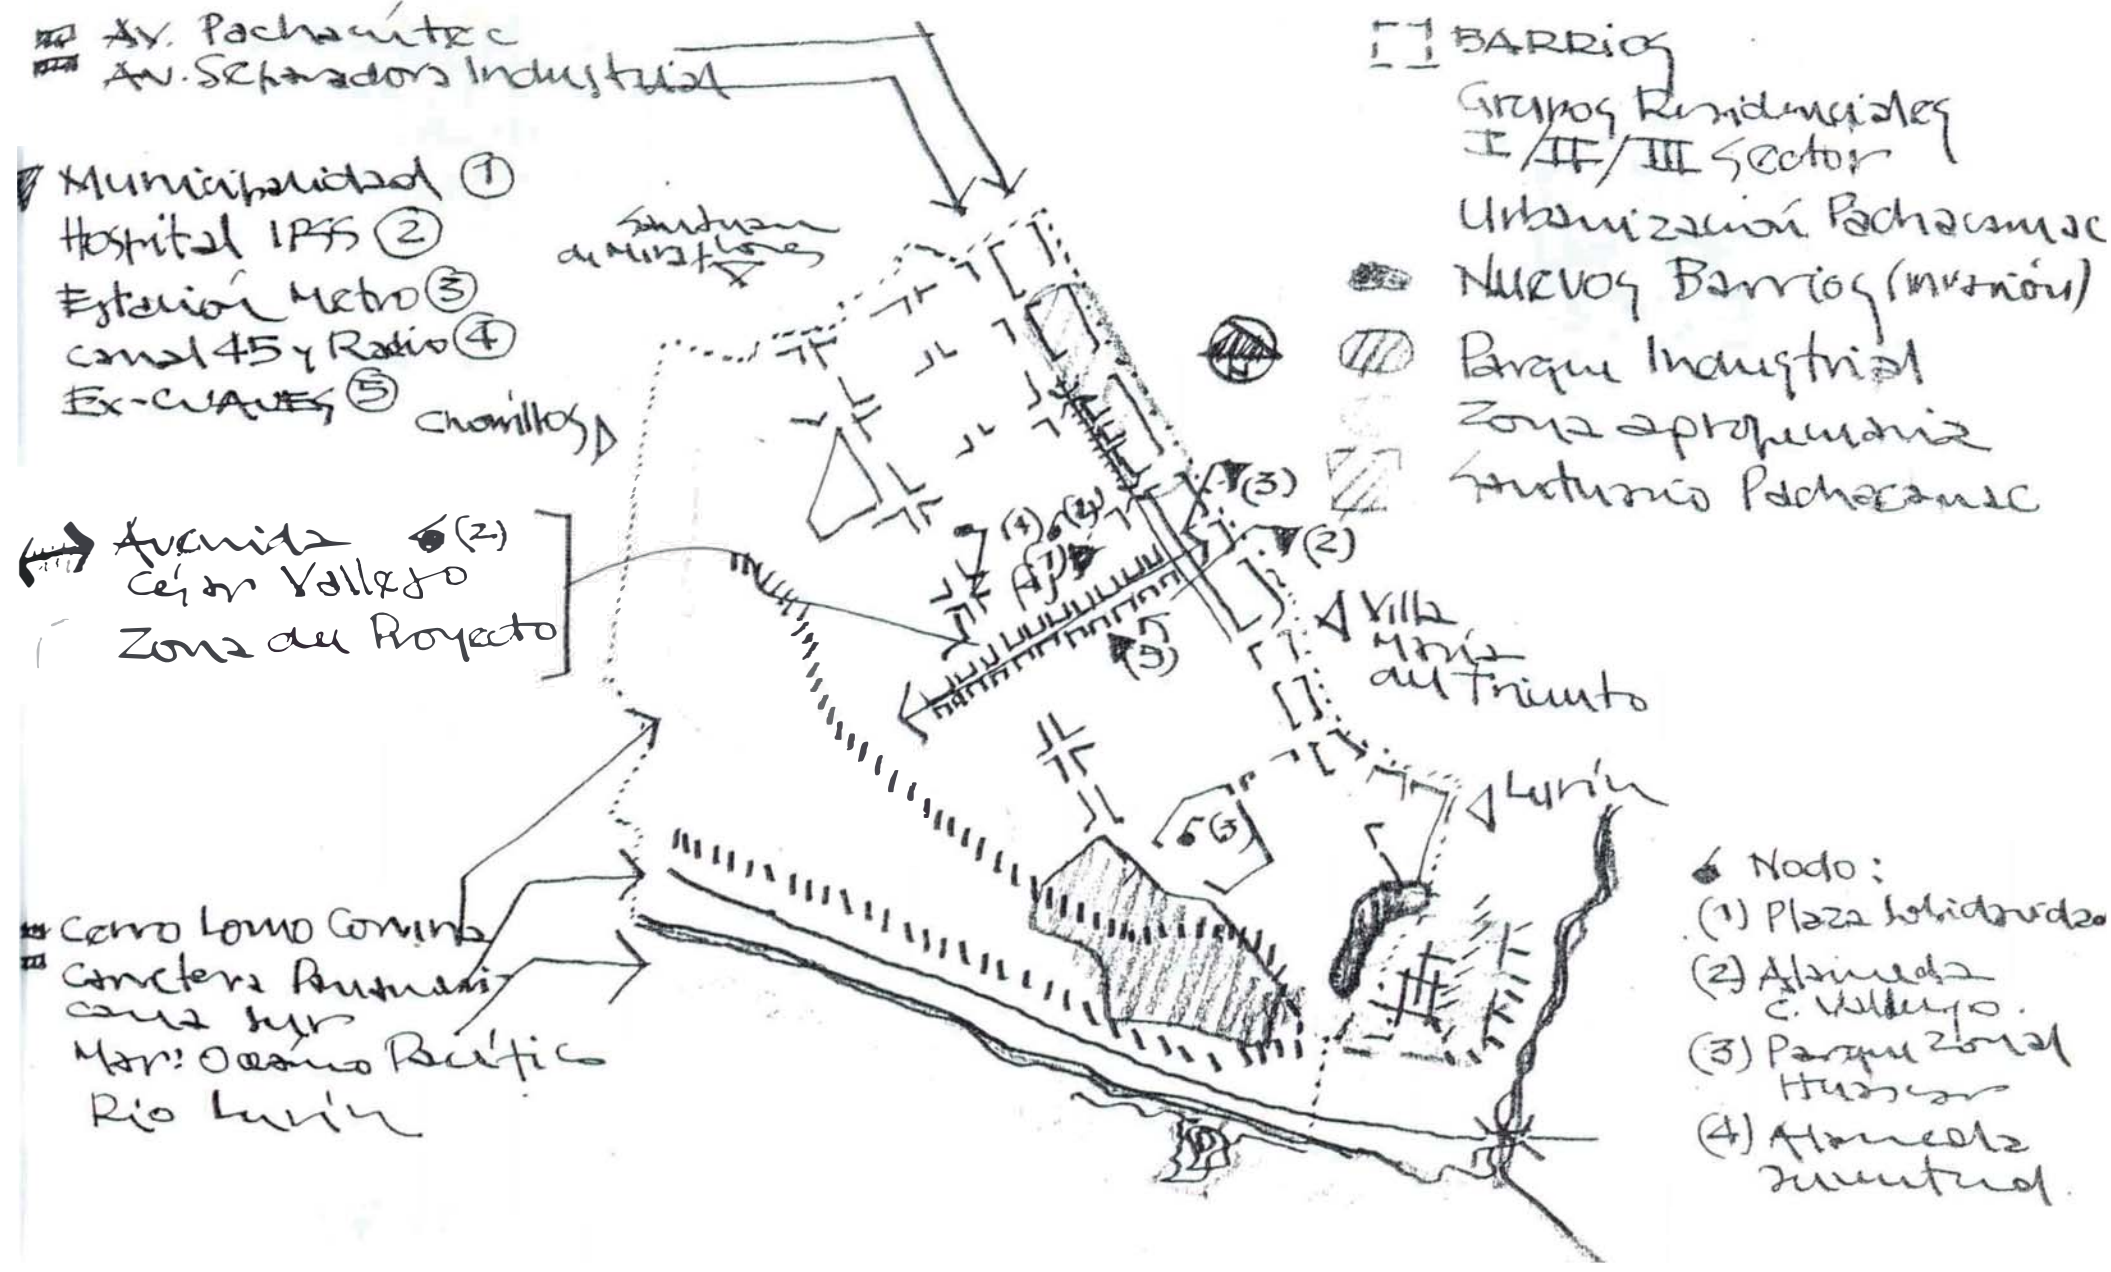 Av. Pachacútec
Av. Separadora Industrial
Municipalidad 1
Hospital IPSS 2
Estación Metro 3
Canal 45 y Radio 4
Ex-CUAVES 5
San Juan
de Miraflores
Chorrillos
Avenida (2)
César Vallejo
Zona del Proyecto
Cerro Lomo Corvina
Carretera Panameri
cana Sur
Mar: Océano Pacífico
Río Lurín
BARRIOS
Grupos Residenciales
I/II/III Sector
Urbanización Pachacamac
Nuevos Barrios (invasión)
Parque Industrial
Zona agropecuaria
Santuario Pachacamac
N
(3)
(2)
(1)
(5)
(3)
Villa
María
del Triunfo
Lurín
Nodo:
(1) Plaza Solidaridad
(2) Alameda
C. Vallejo.
(3) Parque Zonal
Huascar
(4) Alameda
Juventud.